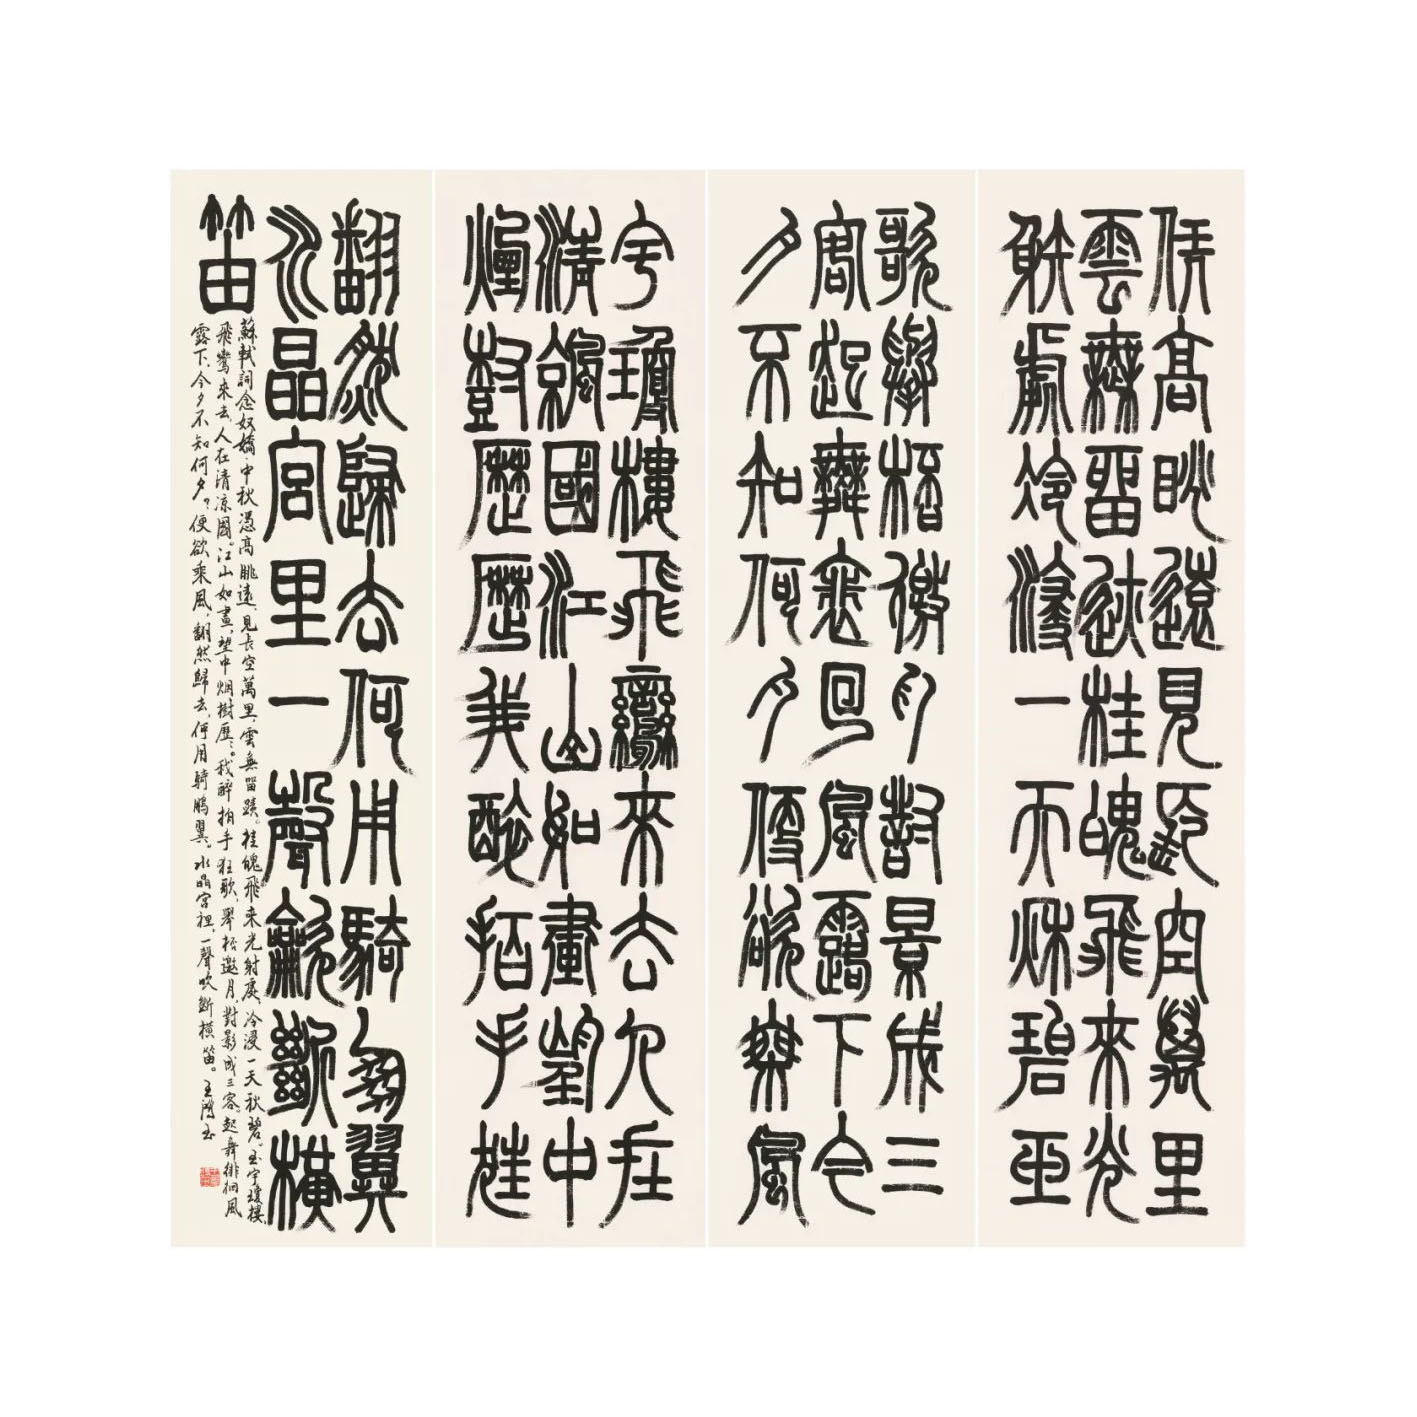 凭高眺遠見長空萬里
雲無留迹桂魄飛來光
射處冷浸一天秋碧玉
歌舉桮邀月對景成三
客起舞裵回風露下今
夕不知何夕便欲乘風
宇瓊樓飛鸞來去人在
清涼國江山如畫望中
煙樹歷歷我醉拍手狂
翻然歸去何用騎鵬翼
水晶宮里一聲龡斷橫
笛
蘇軾詞念奴嬌中秋憑高眺遠,見長空萬里,雲無留蹟。桂魄飛來光射處,冷浸一天秋碧。玉宇瓊樓,
飛鸞來去,人在清涼國。江山如畫,望中烟樹歷〻。我醉拍手狂歌,舉杯邀月,對影成三客。起舞徘徊風
露下,今夕不知何夕?便欲乘風,翻然歸去,何用騎鵬翼。水晶宮裡,一聲吹斷橫笛。